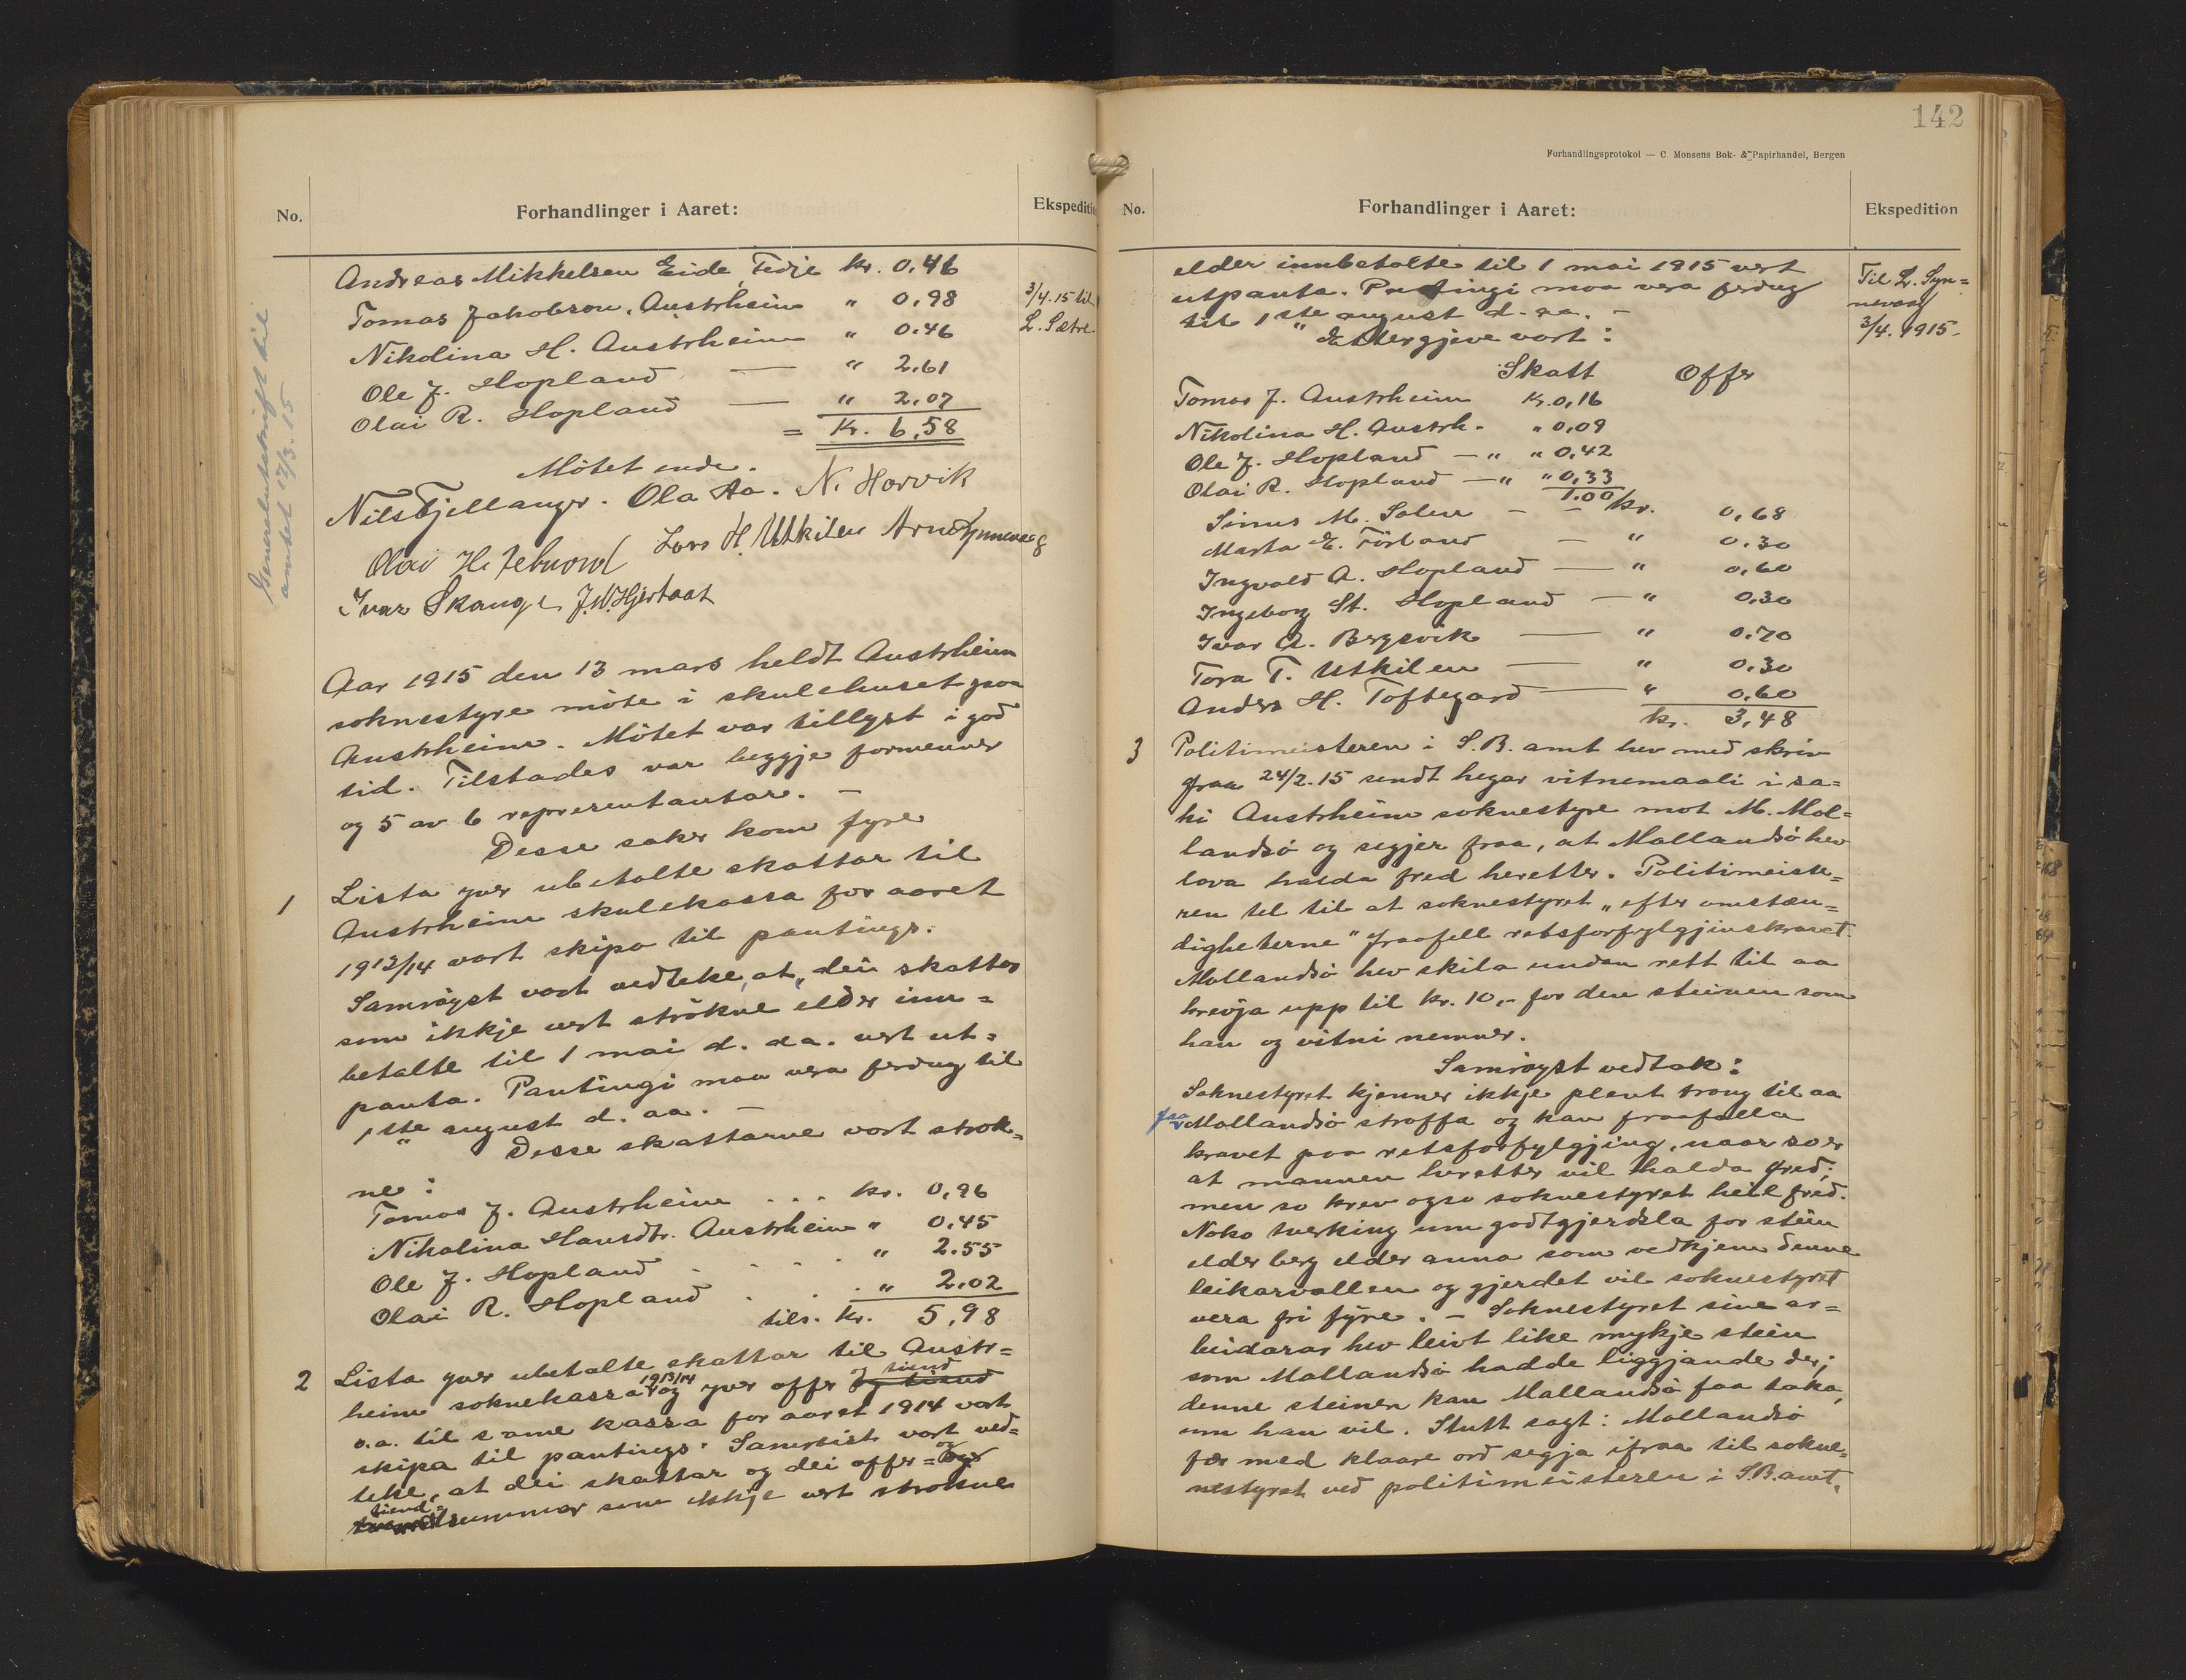 No.
Forhandlinger i Aaret:
Ekspeditio
Andreas Mikkelsen Eide, Fedje kr. 0,46
Tomas Jakobson, Austrheim " 0,98
3/4. 15 til
L. Sætre.
Nikolina H. Austrheim " 0.46
Ole J. Hopland — " 2.61
Olai R. Hopland — " 2,07
= Kr. 6,58
Møtet ende.
Nils Fjellanger. Ola Aa. N. Horvik
Lars H. Utkilen Arne Synnevaag
Olai H.
Ivar Skauge J.W. Hjertaas
Generalutskrift til
amtet 17/3. 15
Aar 1915 den 13 mars heldt Austrheim
soknestyre møte i skulehuset paa
Austrheim. Møtet var tillyst i god
tid. Tilstades var beggje formenner
og 5 av 6 representantar. –
Desse saker kom fyre
1 Lista yver ubetalte skattar til
Austrheim skulekassa for aaret
1913/14 vart skipa til pantings.
Samrøyst vart vedteke, at dei skattar
som ikkje vert strokne elder inn=
betalte til 1 mai d. aa. vert ut=
panta. Pantingi maa vera ferdug til
1ste august d. aa. –
Desse skattarne vart strok=
ne:
Tomas J. Austrheim . . . kr. 0,96
Nikolina Hansdtr. Austrheim " 0,45
Ole J. Hopland . . . . " 2.55
Olai R. Hopland . . . " 2,02
tils. kr. 5,98
2 Lista yver ubetalte skattar til Austr=
heim soknekassa 1913/14 og yver offer og tiend
o.a. til same kassa for aaret 1914 vart
skipa til pantings. Samrøist vart ved=
teke, at dei skattar og dei offer= og
tiend=summar som ikkje vert strokne
142
Forhandlingsprotokol — C. Monsens Bok- & Papirhandel, Bergen
No.
Forhandlinger i Aaret:
Ekspedition
elder innbetalte til 1 mai 1915 vert
utpanta. Pantingi maa vera ferdug
til 1ste august d. aa. –
Til L. Syn=
nevaag
3/4. 1915.
Ettergjeve vart:
Skatt Offer
Tomas J. Austrheim Kr. 0,16
Nikolina H. Austrh. " 0,09
Ole J. Hopland — " " 0,42
Olai R. Hopland — " " 0,33
1.00
Sinus M. Solem – – kr. 0,68
Marta E. Førland — " 0.30
Ingvald A. Hopland — " 0,60
Ingeborg St. Hopland — " 0,30
Ivar A. Bergsvik — " 0.70
Tora T. Utkilen — " 0,30
Anders H. Toftegard — " 0,60
kr. 3,48
3 Politimeisteren i S.B. amt hev med skriv
fraa 24/2. 15 sendt hegar vitnemaali i sa=
ki Austrheim soknestyre mot M. Mol=
landsö og segjer fraa, at Mollandsö hev
lova halda fred heretter. Politimeiste=
ren tel til at soknestyret „efter omstæn=
digheterne" fraafell retsforfylgjinskravet.
Mollandsö hev skila undan rett til aa
krevja upp til kr. 10,- for den steinen som
han og vitni nemner.
Samrøyst vedtak:
Soknestyret kjenner ikkje plent trong til aa
faa Mollandsö straffa og kan fraafalla
kravet paa retsforfylgjing, naar so er
at mannen heretter vil halda fred;
men so krev ogso soknestyret heil fred.
Noko tverking um godtgjerdsla for stein
elder berg elder anna som vedkjem denne
leikarvollen og gjerdet vil soknestyret
vera fri fyre. – Soknestyret sine ar=
beidarar hev leivt like mykje stein
som Mollandsö hadde liggjande der;
denne steinen kan Mollandsö faa taka,
um han vil. Stutt sagt: Mollandsö
fær med klaare ord segja ifraa til sokne=
nestyret ved politimeisteren i S.B. amt,